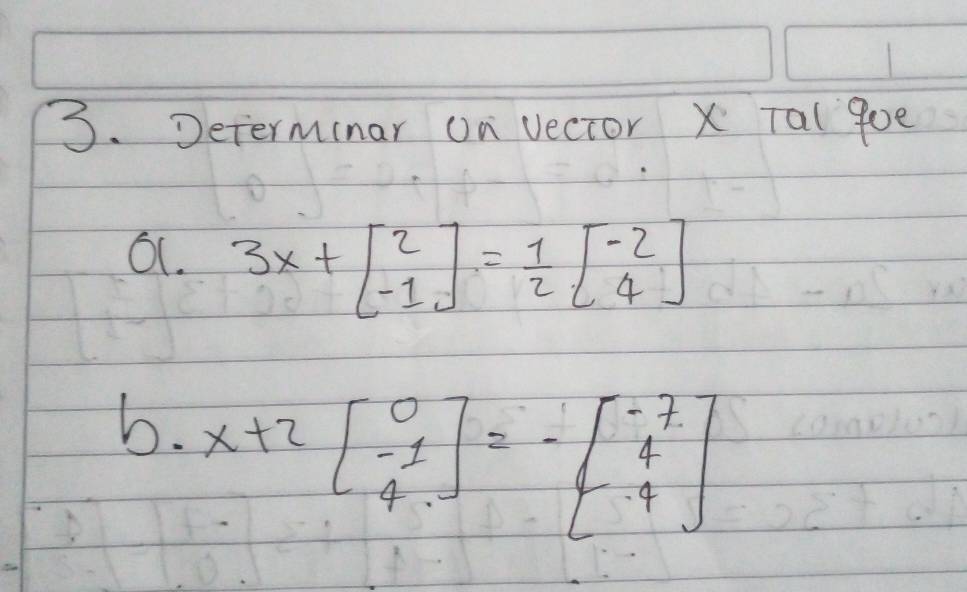 3. Determinar un vector X Tal que
a. 3x + [2 -1] = 1/2 [-2 4]
b. x+2 [0 -1 4] = - [-7 4 4]